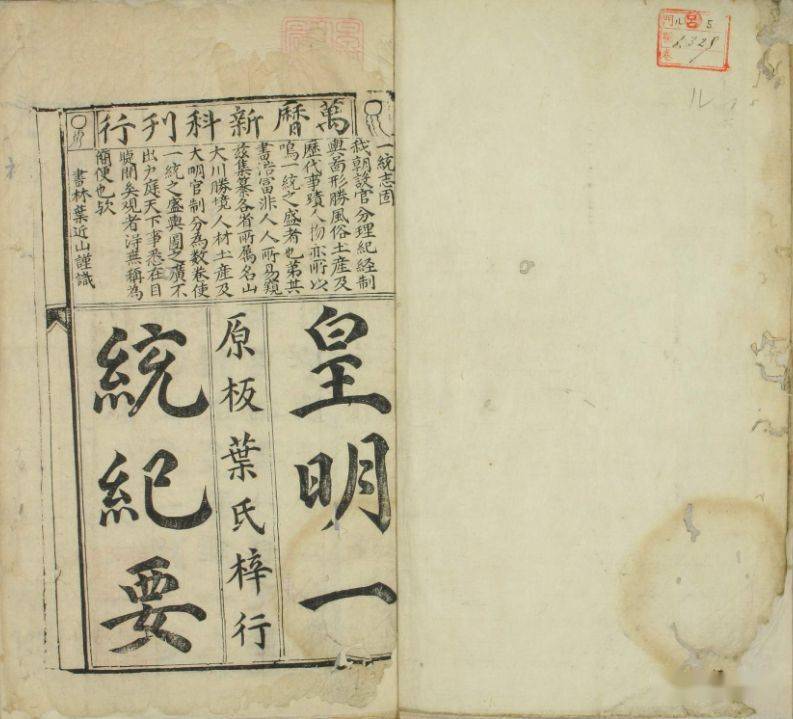 萬曆新科刋行
一統志固
我朝設官分理紀經制
輿啚形勝風俗土產及
歷代事蹟人物亦所以
鳴一統之盛者也第其
書浩富非人人所易窺
茲集纂各省所属名山
大川勝境人材土產及
大明官制分為数卷使
一統之盛輿圖之廣不
出户庭天下事悉在目
睫間矣观者淂無稱為
簡便也欤
書林葉近山謹識
皇明一
原板葉氏梓行
統紀要
門ル5
ル